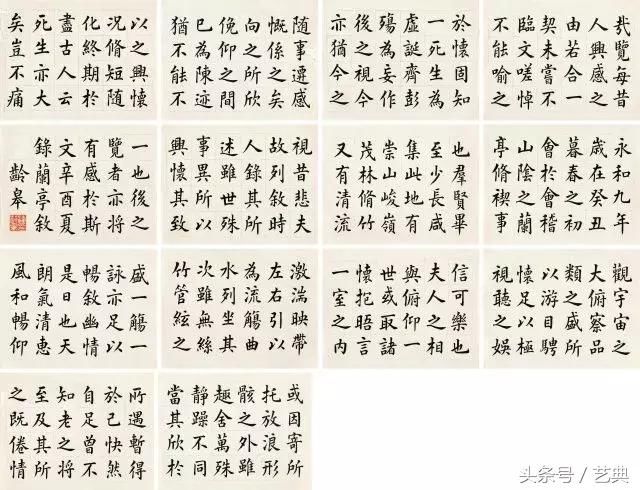 永和九年
歲在癸丑
暮春之初
會於會稽
山陰之蘭
亭脩稧事
也羣賢畢
至少長咸
集此地有
崇山峻嶺
茂林脩竹
又有清流
激湍映帶
左右引以
為流觴曲
水列坐其
次雖無絲
竹管絃之
盛一觴一
詠亦足以
暢敘幽情
是日也天
朗氣清惠
風和暢仰
觀宇宙之
大俯察品
類之盛所
以游目騁
懷足以極
視聽之娛
信可樂也
夫人之相
與俯仰一
世或取諸
懷抱晤言
一室之內
或因寄所
托放浪形
骸之外雖
趣舍萬殊
靜躁不同
當其欣於
所遇暫得
於己快然
自足曾不
知老之將
至及其所
之既倦情
隨事遷感
慨係之矣
向之所欣
俛仰之間
已為陳迹
猶不能不
以之興懷
況脩短隨
化終期於
盡古人云
死生亦大
矣豈不痛
哉覽每昔
人興感之
由若合一
契未嘗不
臨文嗟悼
不能喻之
於懷固知
一死生為
虛誕齊彭
殤為妄作
後之視今
亦猶今之
視昔悲夫
故列敘時
人錄其所
述雖世殊
事異所以
興懷其致
一也後之
覽者亦將
有感於斯
文辛酉夏
錄蘭亭敘
齡皋
头条号／艺典